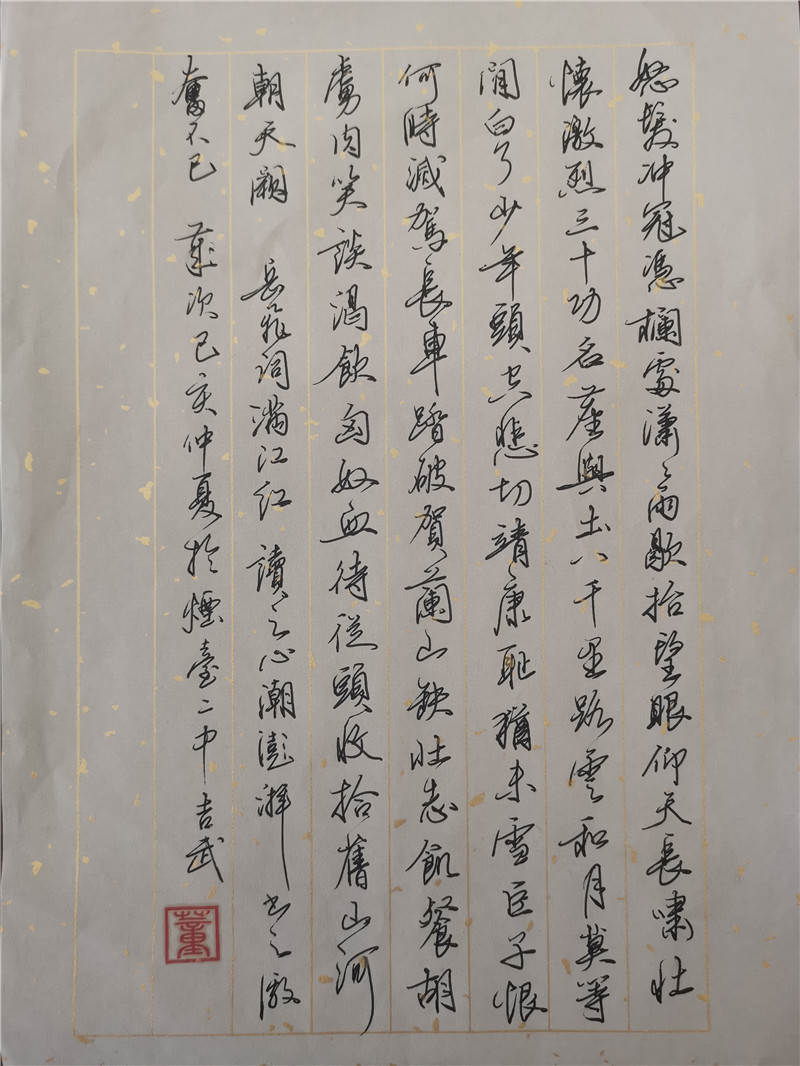 怒髮冲冠憑欄處瀟瀟雨歇抬望眼仰天長嘯壯
懷激烈三十功名塵與土八千里路雲和月莫等
閒白了少年頭空悲切靖康耻猶未雪臣子恨
何時減駕長車踏破賀蘭山缺壯志飢餐胡
虜肉笑談渴飲匈奴血待從頭收拾舊山河
朝天闕 岳飛詞滿江紅 讀之心潮澎湃 书之激
奮不已 歲次己亥仲夏於煙臺二中吉武
董